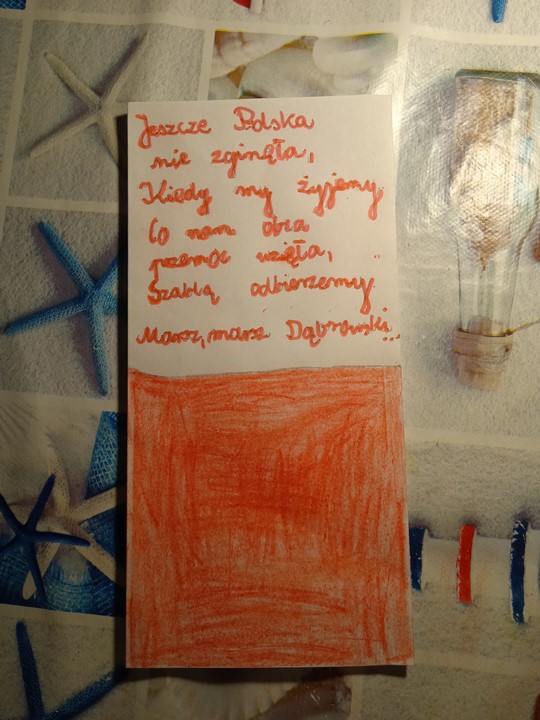 Jeszcze Polska
nie zginęła,
Kiedy my żyjemy.
Co nam obca
przemoc wzięła,
Szablą odbierzemy.
Marsz, marsz Dąbrowski...